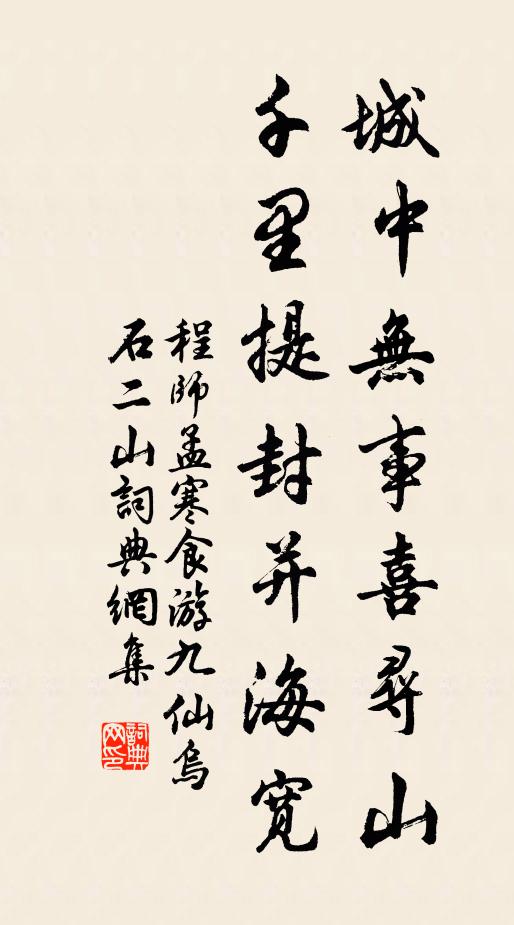 城中無事喜尋山
千里提封并海寬
程師孟寒食游九仙烏
石二山詞典網集
詞典
网印